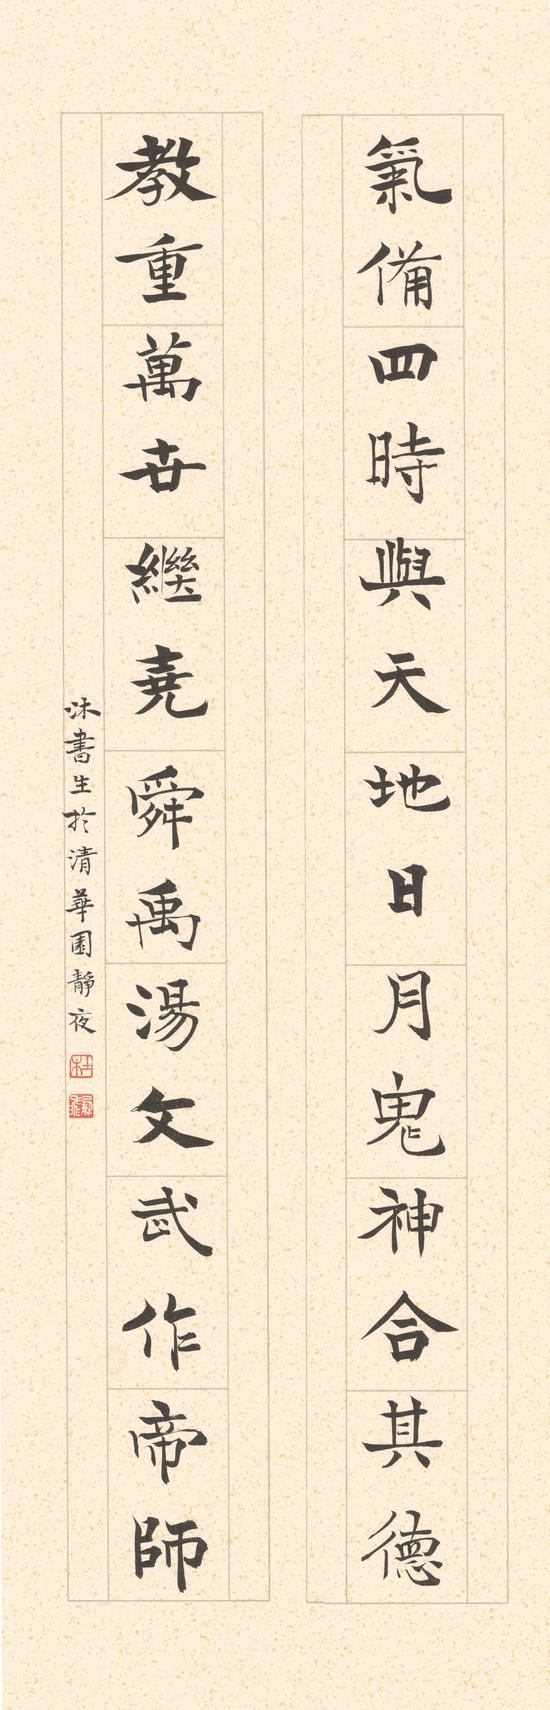 氣備四時與天地日月鬼神合其德
教重萬世繼堯舜禹湯文武作帝師
沐書生於清華園靜夜